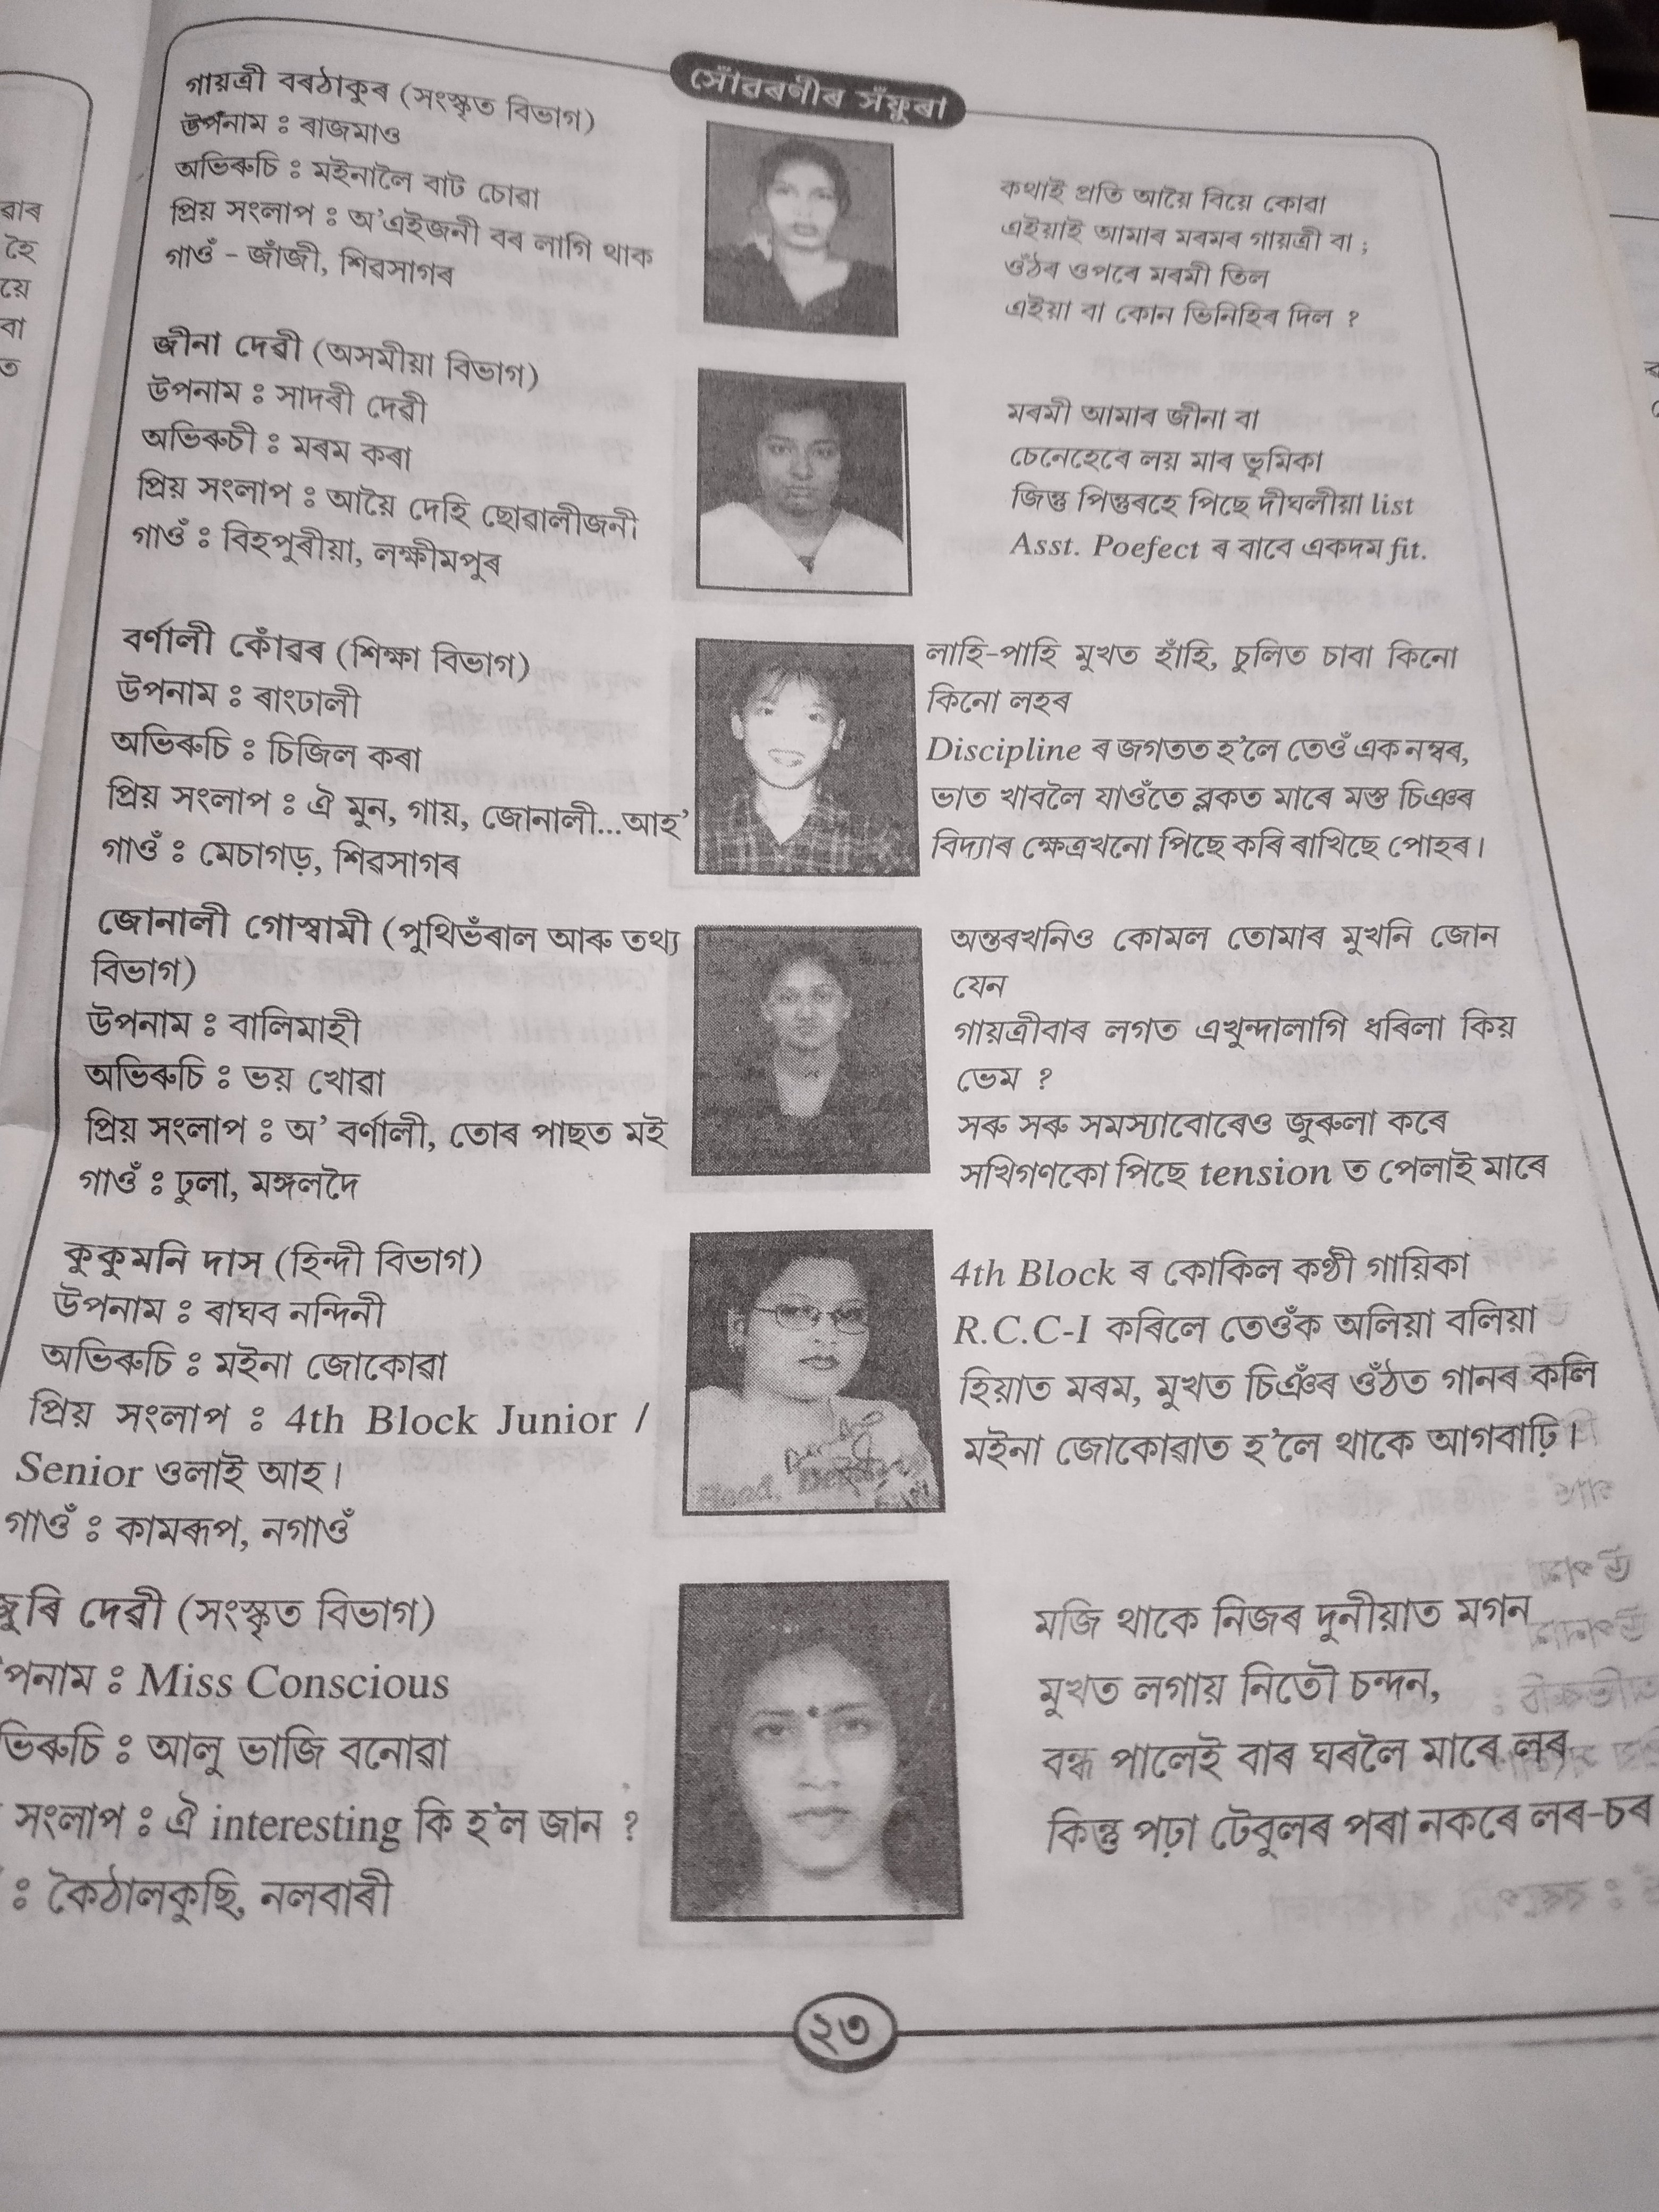 সোঁৱৰণীৰ সঁফুৰা
গায়ত্ৰী বৰঠাকুৰ (সংস্কৃত বিভাগ)
উপনাম ঃ ৰাজমাও
অভিৰুচি ঃ মইনালৈ বাট চোৱা
প্ৰিয় সংলাপ ঃ অ'এইজনী বৰ লাগি থাক
গাওঁ - জাঁজী, শিৱসাগৰ
কথাই প্ৰতি আয়ৈ বিয়ে কোৱা
এইয়াই আমাৰ মৰমৰ গায়ত্ৰী বা ;
ওঁঠৰ ওপৰে মৰমী তিল
এইয়া বা কোন ভিনিহিৰ দিল ?
জীনা দেৱী (অসমীয়া বিভাগ)
উপনাম ঃ সাদৰী দেৱী
অভিৰুচী ঃ মৰম কৰা
প্ৰিয় সংলাপ ঃ আয়ৈ দেহি ছোৱালীজনী
গাওঁ ঃ বিহপুৰীয়া, লক্ষীমপুৰ
মৰমী আমাৰ জীনা বা
চেনেহেৰে লয় মাৰ ভূমিকা
জিন্তু পিন্তুৰহে পিছে দীঘলীয়া list
Asst. Poefect ৰ বাবে একদম fit.
বৰ্ণালী কোঁৱৰ (শিক্ষা বিভাগ)
উপনাম ঃ ৰাংঢালী
অভিৰুচি ঃ চিজিল কৰা
প্ৰিয় সংলাপ ঃ ঐ মুন, গায়, জোনালী...আহ'
গাওঁ ঃ মেচাগড়, শিৱসাগৰ
লাহি-পাহি মুখত হাঁহি, চুলিত চাবা কিনো
কিনো লহৰ
Discipline ৰ জগতত হ'লে তেওঁ এক নম্বৰ,
ভাত খাবলৈ যাওঁতে ব্লকত মাৰে মস্ত চিঞৰ
বিদ্যাৰ ক্ষেত্ৰখনো পিছে কৰি ৰাখিছে পোহৰ।
জোনালী গোস্বামী (পুথিভঁৰাল আৰু তথ্য
বিভাগ)
উপনাম ঃ বালিমাহী
অভিৰুচি ঃ ভয় খোৱা
প্ৰিয় সংলাপ ঃ অ' বৰ্ণালী, তোৰ পাছত মই
গাওঁ ঃ ঢুলা, মঙ্গলদৈ
অন্তৰখনিও কোমল তোমাৰ মুখনি জোন
যেন
গায়ত্ৰীবাৰ লগত এখুন্দালাগি ধৰিলা কিয়
ভেম ?
সৰু সৰু সমস্যাবোৰেও জুৰুলা কৰে
সখিগণকো পিছে tension ত পেলাই মাৰে
কুকুমনি দাস (হিন্দী বিভাগ)
উপনাম ঃ ৰাঘব নন্দিনী
অভিৰুচি ঃ মইনা জোকোৱা
প্ৰিয় সংলাপ ঃ 4th Block Junior /
Senior ওলাই আহ।
গাওঁ ঃ কামৰূপ, নগাওঁ
4th Block ৰ কোকিল কণ্ঠী গায়িকা
R.C.C-I কৰিলে তেওঁক অলিয়া বলিয়া
হিয়াত মৰম, মুখত চিঞঁৰ ওঁঠত গানৰ কলি
মইনা জোকোৱাত হ'লে থাকে আগবাঢ়ি।
ঞ্জুৰি দেৱী (সংস্কৃত বিভাগ)
পনাম ঃ Miss Conscious
ভিৰুচি ঃ আলু ভাজি বনোৱা
সংলাপ ঃ ঐ interesting কি হ'ল জান ?
ঃ কৈঠালকুছি, নলবাৰী
মজি থাকে নিজৰ দুনীয়াত মগন
মুখত লগায় নিতৌ চন্দন,
বন্ধ পালেই বাৰ ঘৰলৈ মাৰে লৰ
কিন্তু পঢ়া টেবুলৰ পৰা নকৰে লৰ-চৰ
২৩
ৱাৰ
হৈ
য়ে
বা
ত